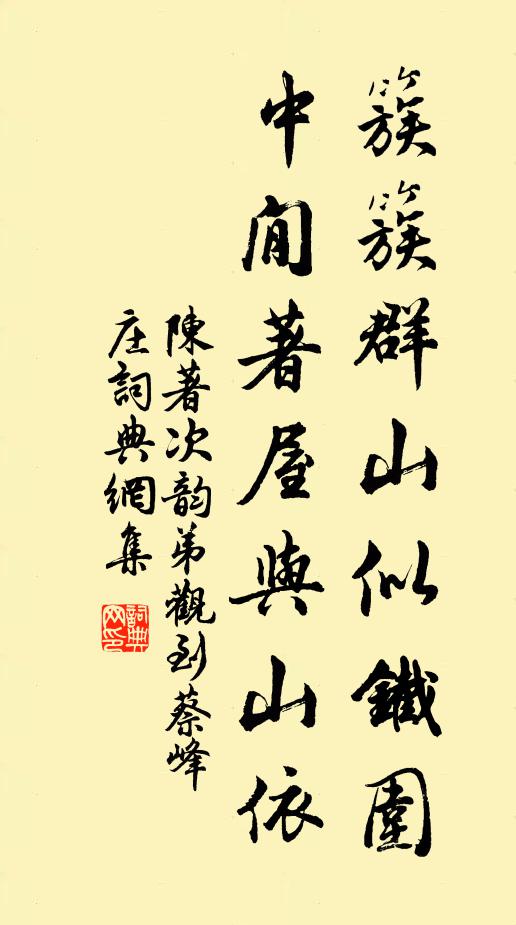 簇簇群山似鐵圍
中間著屋與山依
陳著次韵弟觀到蔡峰
庄詞典網集
詞典
网印